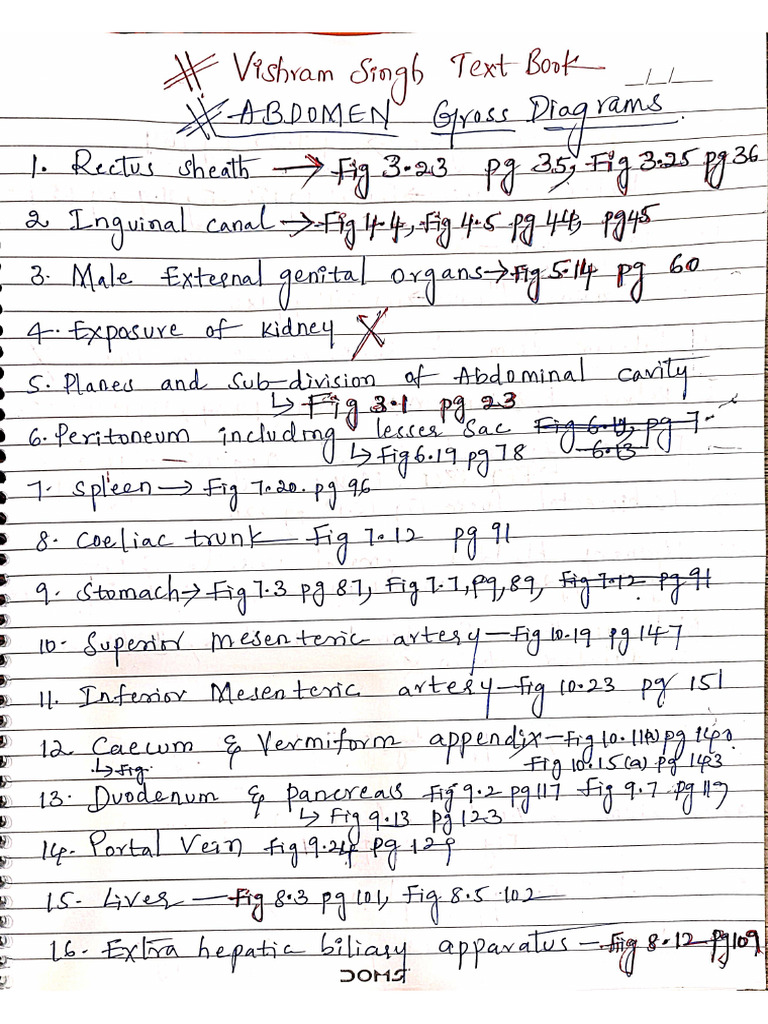 # Vishram Singh Text Book
# ABDOMEN Gross Diagrams.
1. Rectus sheath → Fig 3.23 pg 35, Fig 3.25 pg 36
2 Inguinal canal → Fig 4.4, Fig 4.5 pg 44, pg45
3. Male External genital organs → Fig 5.14 pg 60
4. Exposure of kidney X
5. Planes and Sub-division of Abdominal cavity
↳ Fig 3.1 pg 23
6. Peritoneum including lesser Sac Fig 6.14, pg 7-
↳ Fig 6.19 pg 78 6.13
7. Spleen → Fig 7.20. pg 96
8. Coeliac trunk - Fig 7.12 pg 91
9. Stomach → Fig 7.3 pg 87, Fig 7.7, Pg, 89, Fig 7.12 pg 91
10. Superior mesenteric artery - Fig 10.19 pg 147
11. Inferior Mesenteric artery - Fig 10.23 pg 151
12. Caecum & Vermiform appendix - Fig 10.11(a) pg 140.
↳ Fig. Fig 10.15(a) pg 143
13. Duodenum & pancreas Fig 9.2 pg 117 Fig 9.7 pg 119
↳ Fig 9.13 pg 123
14. Portal Vein Fig 9.24 pg 129
15. Liver - Fig 8.3 pg 101, Fig 8.5 102
16. Extra hepatic biliary apparatus - Fig 8.12 pg 109
DOMS